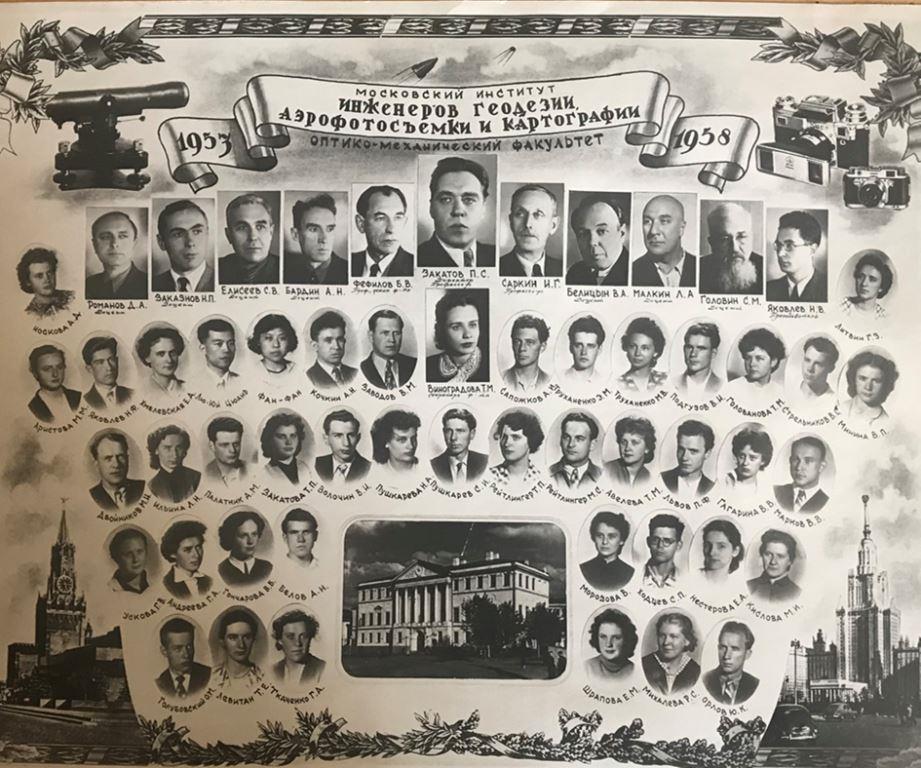 МОСКОВСКИЙ ИНСТИТУТ
ИНЖЕНЕРОВ ГЕОДЕЗИИ,
АЭРОФОТОСЪЕМКИ И КАРТОГРАФИИ
1953
1958
ОПТИКО-МЕХАНИЧЕСКИЙ ФАКУЛЬТЕТ
РОМАНОВ Д.А.
Доцент
ЗАКАЗНОВ Н.П.
Доцент
ЕЛИСЕЕВ С.В.
Доцент
БАРДИН А.Н.
Доцент
ФЕФИЛОВ Б.В.
ЗАКАТОВ П.С.
Директор
Профессор
САРКИН И.Г.
Профессор
БЕЛИЦЫН В.А.
Доцент
МАЛКИН Л.А
Доцент
ГОЛОВИН С.М.
Доцент
ЯКОВЛЕВ Н.В.
НОСКОВА А.Д.
ЛИТВИН Г.З.
АРИСТОВА М.М.
ЯКОВЛЕВ Н.Ф.
ХМЕЛЕВСКАЯ Е.А.
ЛЮ-ЮЙ ЦЮАНЬ
ФАН-ФАН
КОЧКИН А.Н.
ЗАВОДОВ В.М.
ВИНОГРАДОВА Т.М.
САПОЖКОВ
ТРУХАНЕНКО Э.М.
ТРУХАНЕНКО М.В.
ПОДГУЗОВ В.И.
ГОЛОВАНОВА Т.М.
СТРЕЛЬНИКОВ В.С.
МИНИНА В.П.
ДВОЙНИКОВ М.И.
ИЛЬИНА Л.Н.
ПАЛАТНИК А.М.
ЗАКАТОВА Т.П.
ВОЛОЧИН В.И.
ПУШКАРЕВА Н.А.
ПУШКАРЕВ С.И.
РЕЙТЛИНГЕР Т.П.
РЕЙТЛИНГЕР М.С.
АВЕЛЕВА Т.М.
ЛЬВОВ П.Ф.
ГАГАРИНА В.Ф.
МАРКОВ В.В.
УСКОВА Г.М.
АНДРЕЕВА Г.А.
ГОНЧАРОВА В.В.
БЕЛОВ А.Н.
МОРОЗОВА В.
ХОДЦЕВ С.П.
НЕСТЕРОВА Е.А.
КИСЛОВА М.И.
ГОЛУБОВСКИЙ О.М.
ЛЕВИТАН Т.Ш.
ТКАЧЕНКО Г.А.
ШРАПОВА Е.М.
МИХАЛЕВА Р.С.
ОРЛОВ Ю.К.